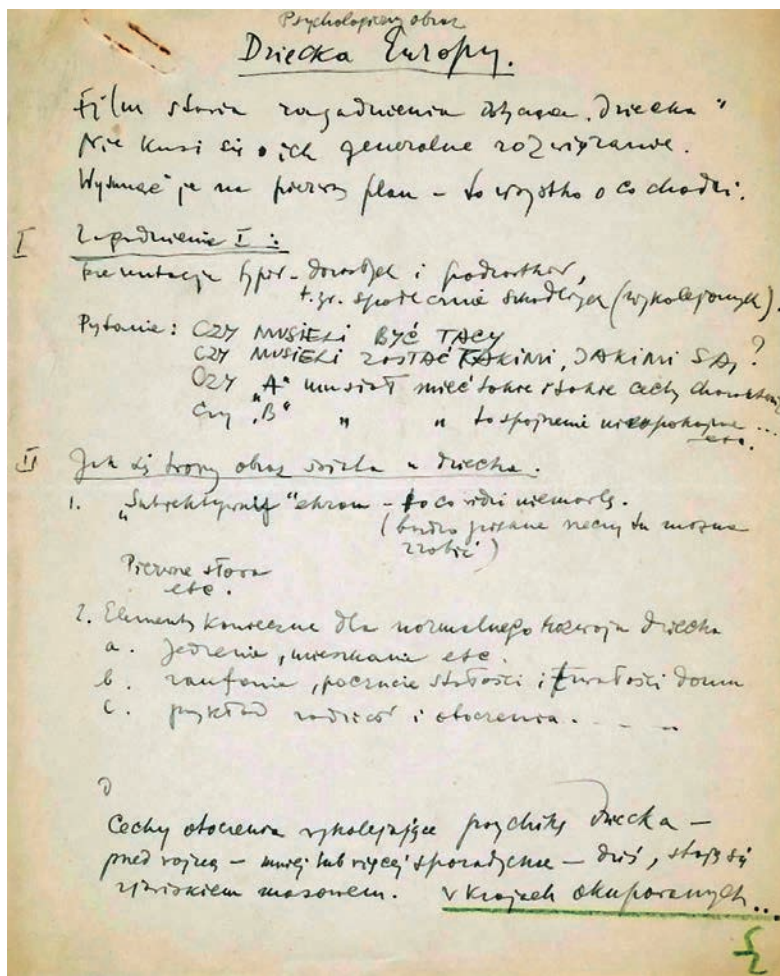 Psychologiczny obraz
Dziecka Europy.
Film stawia zagadnienia "dziecka"
Nie kusi się o ich generalne rozwiązanie.
Wysunąć je na pierwszy plan - to wszystko o co chodzi.
I Zagadnienie I :
Prezentacja typów - dorosłych i podrostków,
t.zn. społecznie szkodliwych (wykolejonych).
Pytanie: CZY MUSIELI BYĆ TACY
CZY MUSIELI ZOSTAĆ TAKIMI, JAKIMI SĄ ?
Czy "A" musiał mieć takie i takie cechy charakteru
Czy "B" " " to spojrzenie niespokojne ...
etc.
II Jak się tworzy obraz świata u dziecka.
1. "Subiektywny" ekran - to co widzi niemowlę.
(bardzo piękne rzeczy tu można
zrobić)
Pierwsze słowa
etc.
2. Elementy konieczne dla normalnego rozwoju dziecka
a. jedzenie, mieszkanie etc.
b. zaufanie, poczucie stałości i trwałości domu
c. przykład rodziców i otoczenia. - - -
Cechy otoczenia wykolejające psychikę dziecka -
przed wojną - mniej lub więcej sporadyczne - dziś, stają się
zjawiskiem masowem. w krajach okupowanych...